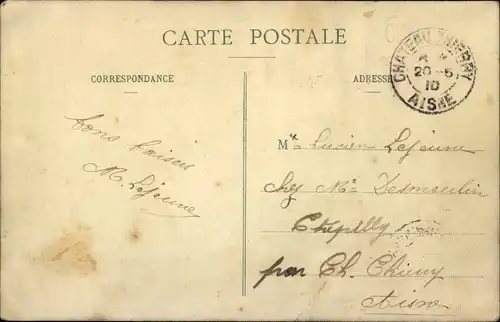 CARTE POSTALE
CORRESPONDANCE
ADRESSE
CHATEAU-THIERRY
20-5
10
AISNE
bons baisers
M. Lejeune
Mr Lucien Lejeune
chez Mr Desmoulin
par Ch. Thierry
Aisne